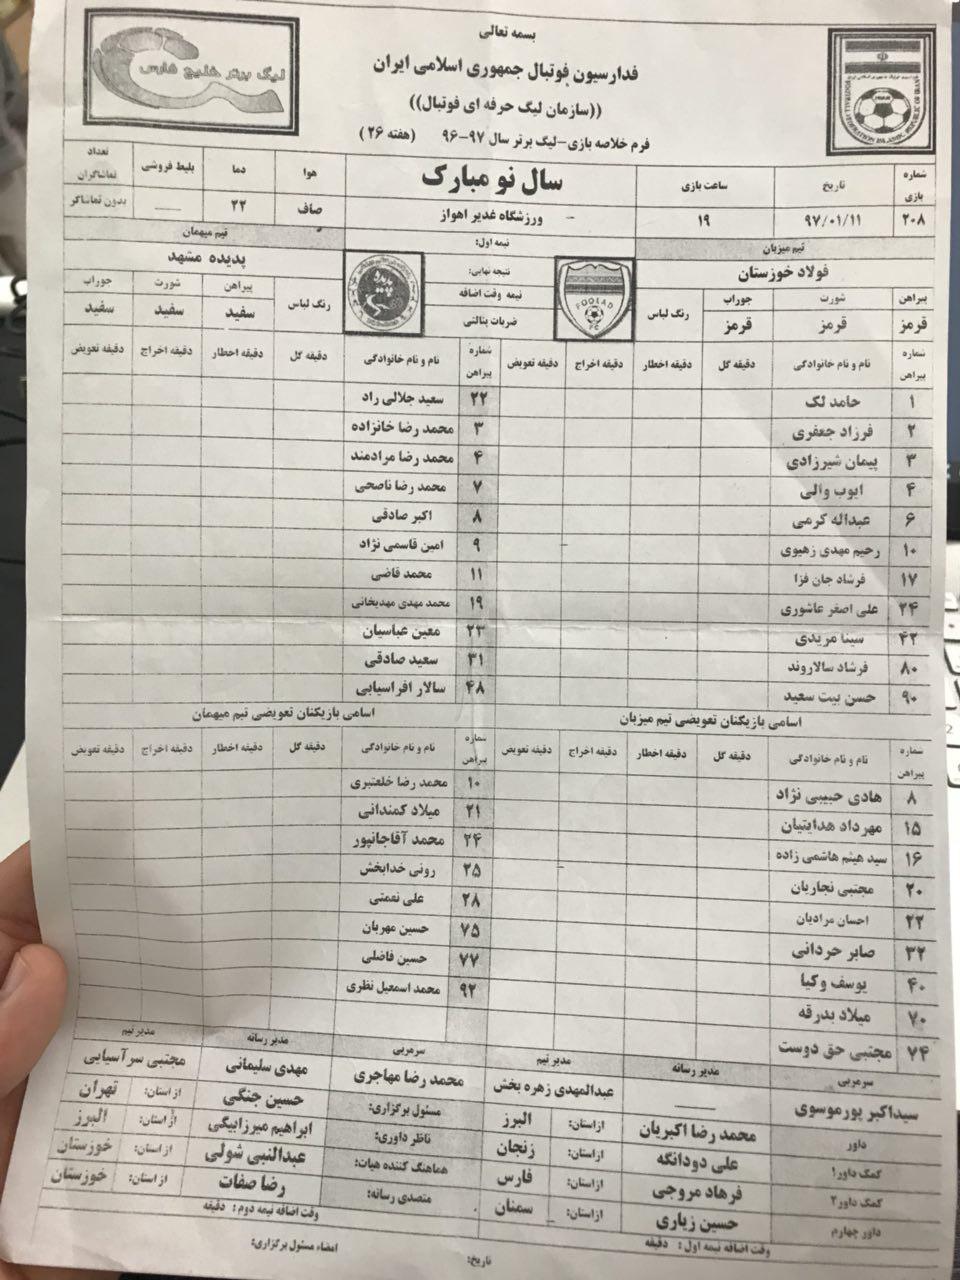 بسمه تعالی
فدارسیون فوتبال جمهوری اسلامی ایران
((سازمان لیگ حرفه ای فوتبال))
فرم خلاصه بازی-لیگ برتر سال ۹۷-۹۶ (هفته ۲۶)
لیگ برتر خلیج فارس
FOOTBALL FEDERATION ISLAMIC REPUBLIC OF IRAN
شماره بازی تاریخ ساعت بازی سال نو مبارک هوا دما بلیط فروشی تعداد تماشاگران
۲۰۸ ۹۷/۰۱/۱۱ ۱۹ ورزشگاه غدیر اهواز صاف ۲۲ بدون تماشاگر
تیم میزبان نیمه اول: تیم میهمان
فولاد خوزستان نتیجه نهایی: پدیده مشهد
پیراهن شورت جوراب رنگ لباس FOOLAD FC نیمه وقت اضافه رنگ لباس پیراهن شورت جوراب
قرمز قرمز قرمز ضربات پنالتی سفید سفید سفید
شماره پیراهن نام و نام خانوادگی دقیقه گل دقیقه اخطار دقیقه اخراج دقیقه تعویض شماره پیراهن نام و نام خانوادگی دقیقه گل دقیقه اخطار دقیقه اخراج دقیقه تعویض
۱ حامد لک ۲۲ سعید جلالی راد
۲ فرزاد جعفری ۳ محمد رضا خانزاده
۳ پیمان شیرزادی ۴ محمد رضا مرادمند
۴ ایوب والی ۷ محمد رضا ناصحی
۶ عبداله کرمی ۸ اکبر صادقی
۱۰ رحیم مهدی زهیوی ۹ امین قاسمی نژاد
۱۷ فرشاد جان فزا ۱۱ محمد قاضی
۲۴ علی اصغر عاشوری ۱۹ محمد مهدی مهدیخانی
۴۲ سینا مریدی ۲۳ معین عباسیان
۸۰ فرشاد سالاروند ۳۱ سعید صادقی
۹۰ حسن بیت سعید ۴۸ سالار افراسیابی
اسامی بازیکنان تعویضی تیم میزبان اسامی بازیکنان تعویضی تیم میهمان
شماره پیراهن نام و نام خانوادگی دقیقه گل دقیقه اخطار دقیقه اخراج دقیقه تعویض شماره پیراهن نام و نام خانوادگی دقیقه گل دقیقه اخطار دقیقه اخراج دقیقه تعویض
۸ هادی حبیبی نژاد ۱۰ محمد رضا خلعتبری
۱۵ مهرداد هدایتیان ۲۱ میلاد کمندانی
۱۶ سید هیثم هاشمی زاده ۲۴ محمد آقاجانپور
۲۰ مجتبی نجاریان ۲۵ رونی خدابخش
۲۲ احسان مرادیان ۲۸ علی نعمتی
۳۲ صابر حردانی ۷۵ حسین مهربان
۴۰ یوسف وکیا ۷۷ حسین فاضلی
۷۰ میلاد بدرقه ۹۲ محمد اسمعیل نظری
۷۴ مجتبی حق دوست
سرمربی مدیر رسانه مدیر تیم سرمربی مدیر رسانه مدیر تیم
سیداکبر پورموسوی عبدالمهدی زهره بخش محمد رضا مهاجری مهدی سلیمانی مجتبی سرآسیایی
داور محمد رضا اکبریان ازاستان: البرز مسئول برگزاری: حسین جنگی ازاستان: تهران
کمک داور۱ علی دودانگه ازاستان: زنجان ناظر داوری: ابراهیم میرزابیگی ازاستان: البرز
کمک داور۲ فرهاد مروجی ازاستان: فارس هماهنگ کننده هیات: عبدالنبی شولی ازاستان: خوزستان
داور چهارم حسین زیاری ازاستان: سمنان متصدی رسانه: رضا صفات ازاستان: خوزستان
وقت اضافه نیمه اول : دقیقه وقت اضافه نیمه دوم : دقیقه
تاریخ: امضاء مسئول برگزاری: